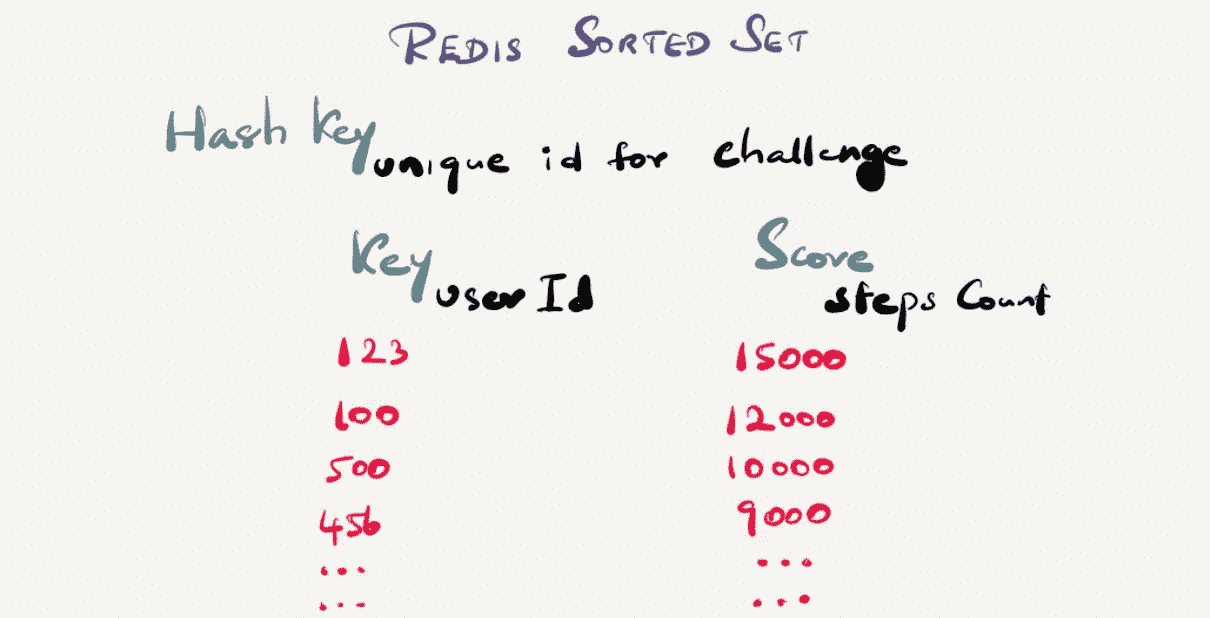 REDIS SORTED SET
Hash Key unique id for challenge
Key userId Score steps Count
123 15000
100 12000
500 10000
456 9000
... ...
... ...